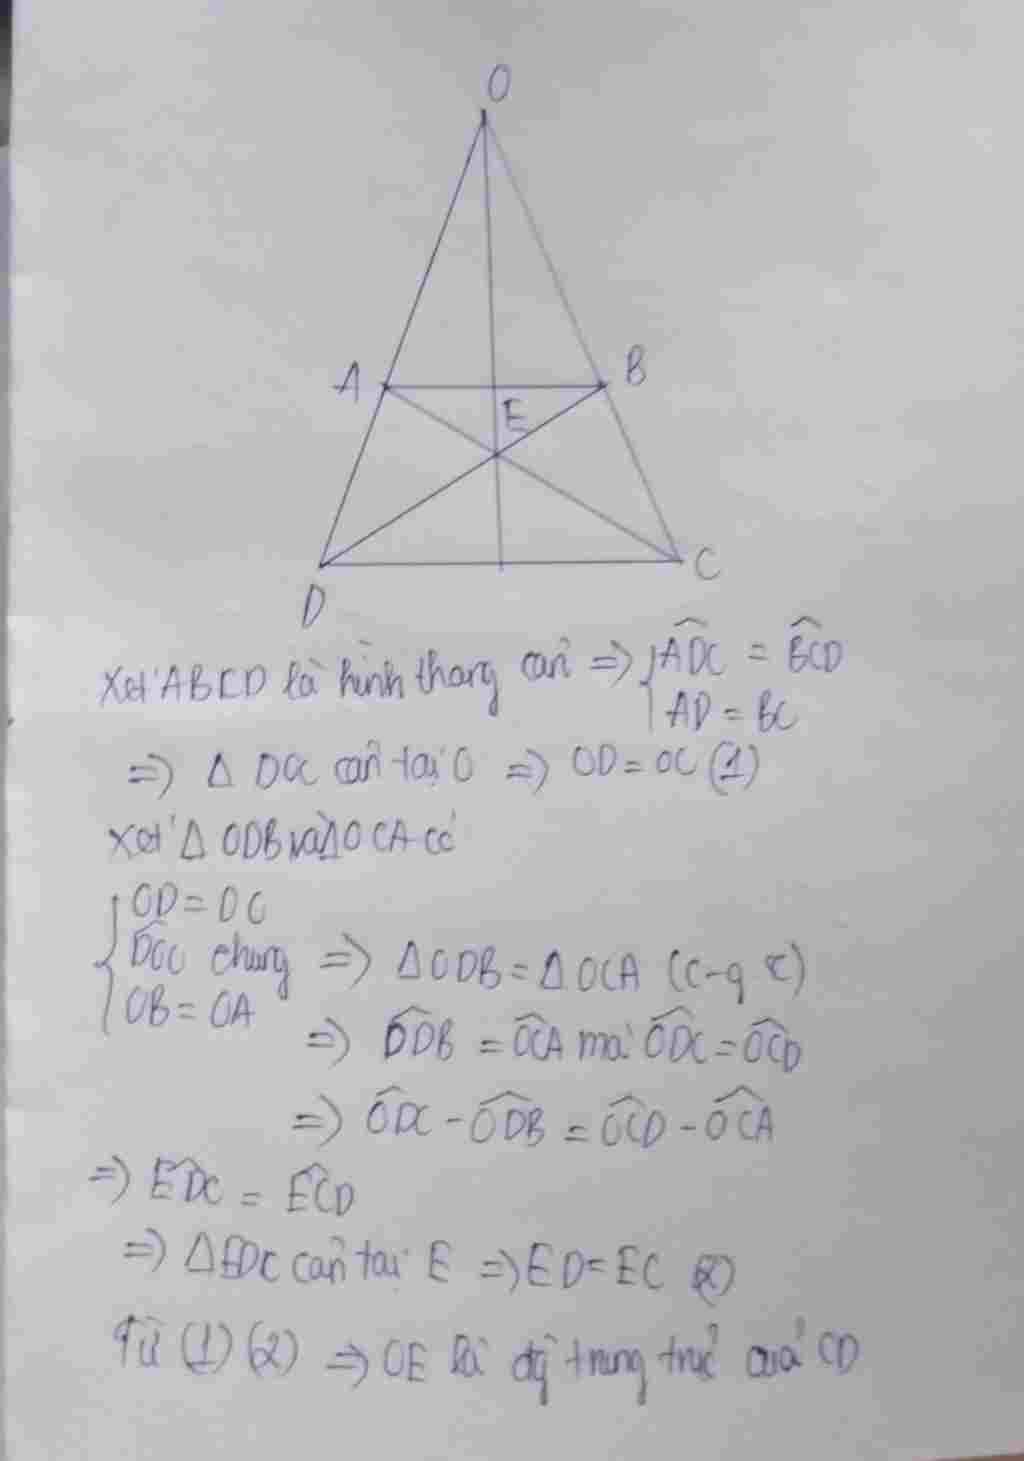 O
A
B
E
D
C
Xét ABCD là hình thang cân => { ADC^ = BCD^
AD = BC
=> Δ DOC cân tại O => OD = OC (1)
Xét Δ ODB và Δ OCA có
{ OD = OC
DOC^ chung => Δ ODB = Δ OCA (c-g c)
OB = OA
=> ODB^ = OCA^ mà ODC^ = OCD^
=> ODC^ - ODB^ = OCD^ - OCA^
=> EDC^ = ECD^
=> Δ EDC cân tại E => ED = EC (2)
Từ (1) (2) => OE là đg trung trực của CD